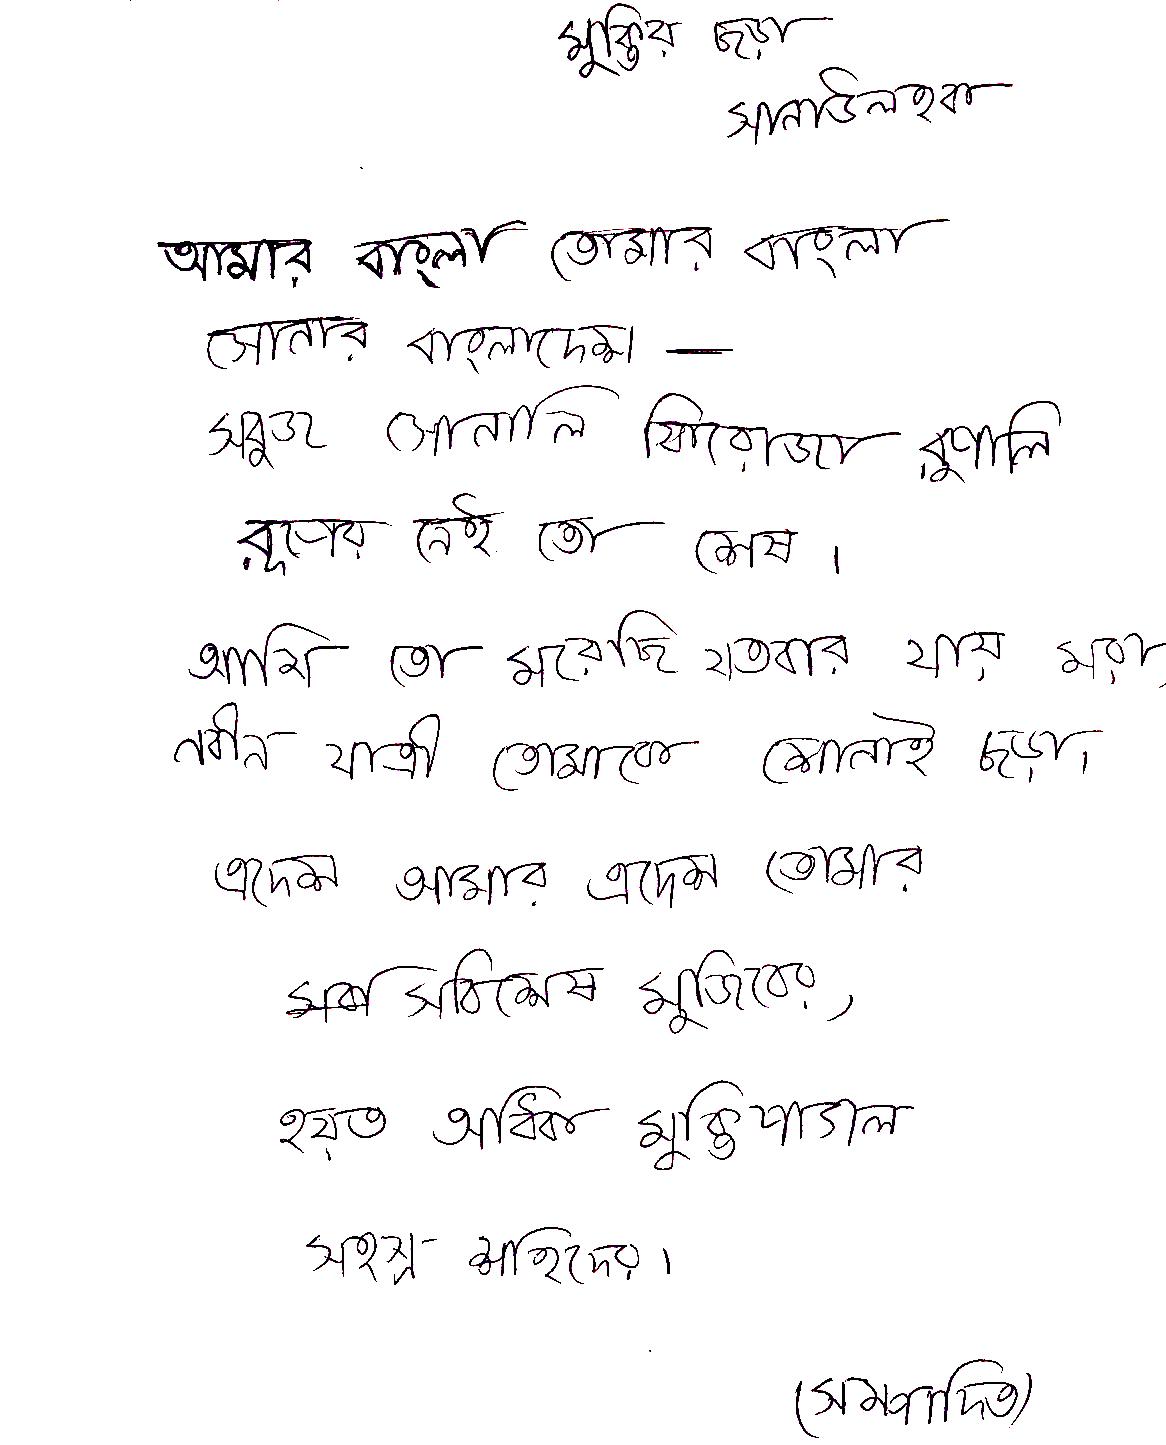 মুক্তির ছড়া
সানাউল হক
আমার বাংলা তোমার বাংলা
সোনার বাংলাদেশ —
সবুজ সোনালি ফিরোজা রুপালি
রূপের নেই তো শেষ ।
আমি তো মরেছি যতবার যায় মরা,
নবীন যাত্রী তোমাকে শোনাই ছড়া ।
এদেশ আমার এদেশ তোমার
সবিশেষ মুজিবের,
হয়ত অধিক মুক্তি পাগল
সহস্র শহিদের ।
(সমপাদিত)